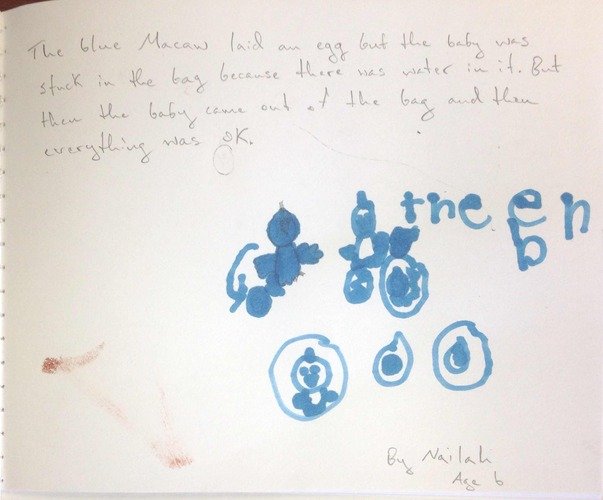 The blue Macaw laid an egg but the baby was
stuck in the bag because there was water in it. But
then the baby came out of the bag and then
everything was OK.
the en
b
By Nailah
Age 6